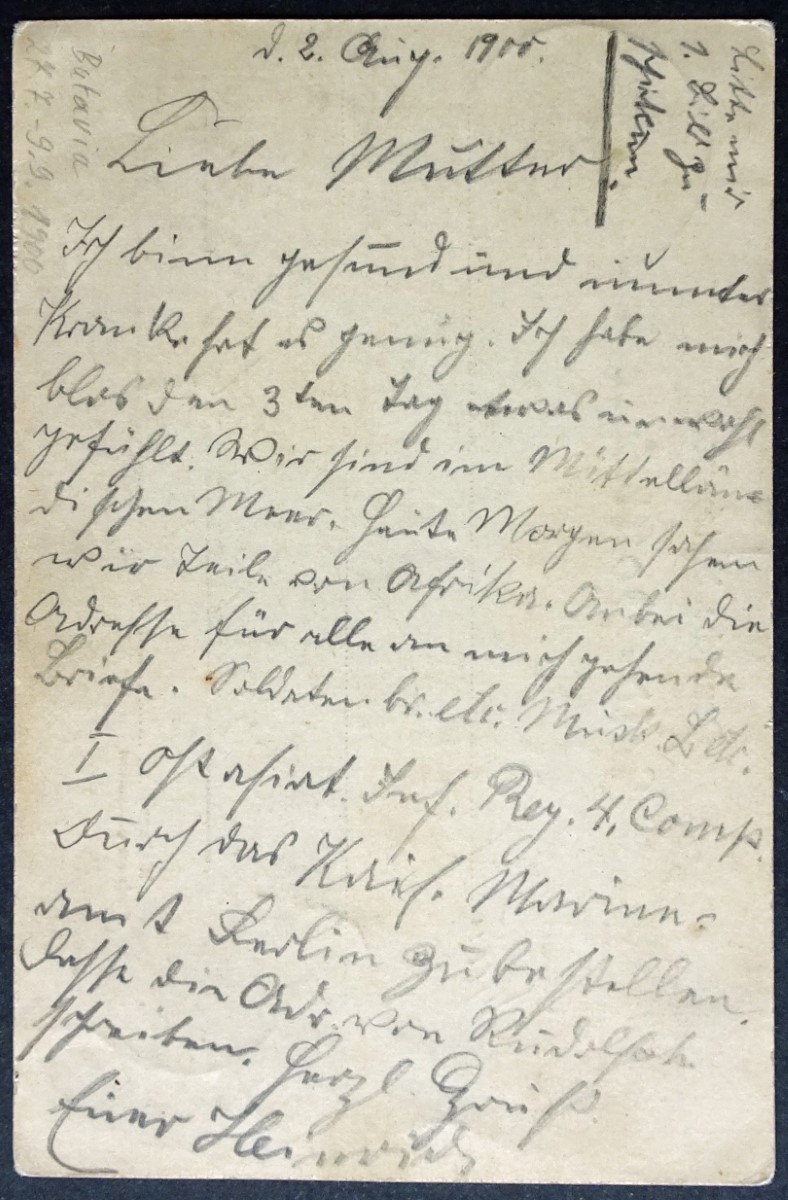 d. 2. Aug. 1900.
Liebe Mutter.
Ich binn gesund und munter
Kranke hat es genug. Ich habe mich
blos den 3ten Tag etwas unwohl
gefühlt. Wir sind im Mittellän-
dischen Meer. Heute Morgen sahen
wir Teile von Afrika. Anbei die
Adresse für alle an mich gehende
Briefe. Soldatenbr. etc. Musk. L etc.
I Ostasiat. Inf. Reg. 4. Comp.
Durch das Kais. Marine-
amt Berlin zu bestellen.
Lasse die Adr. von Rudolf
schreiben. Herzl. Gruß.
Euer Heinrich
Bitte mir
1. Bild zu-
schicken
Batavia
27.7.-9.9.1900